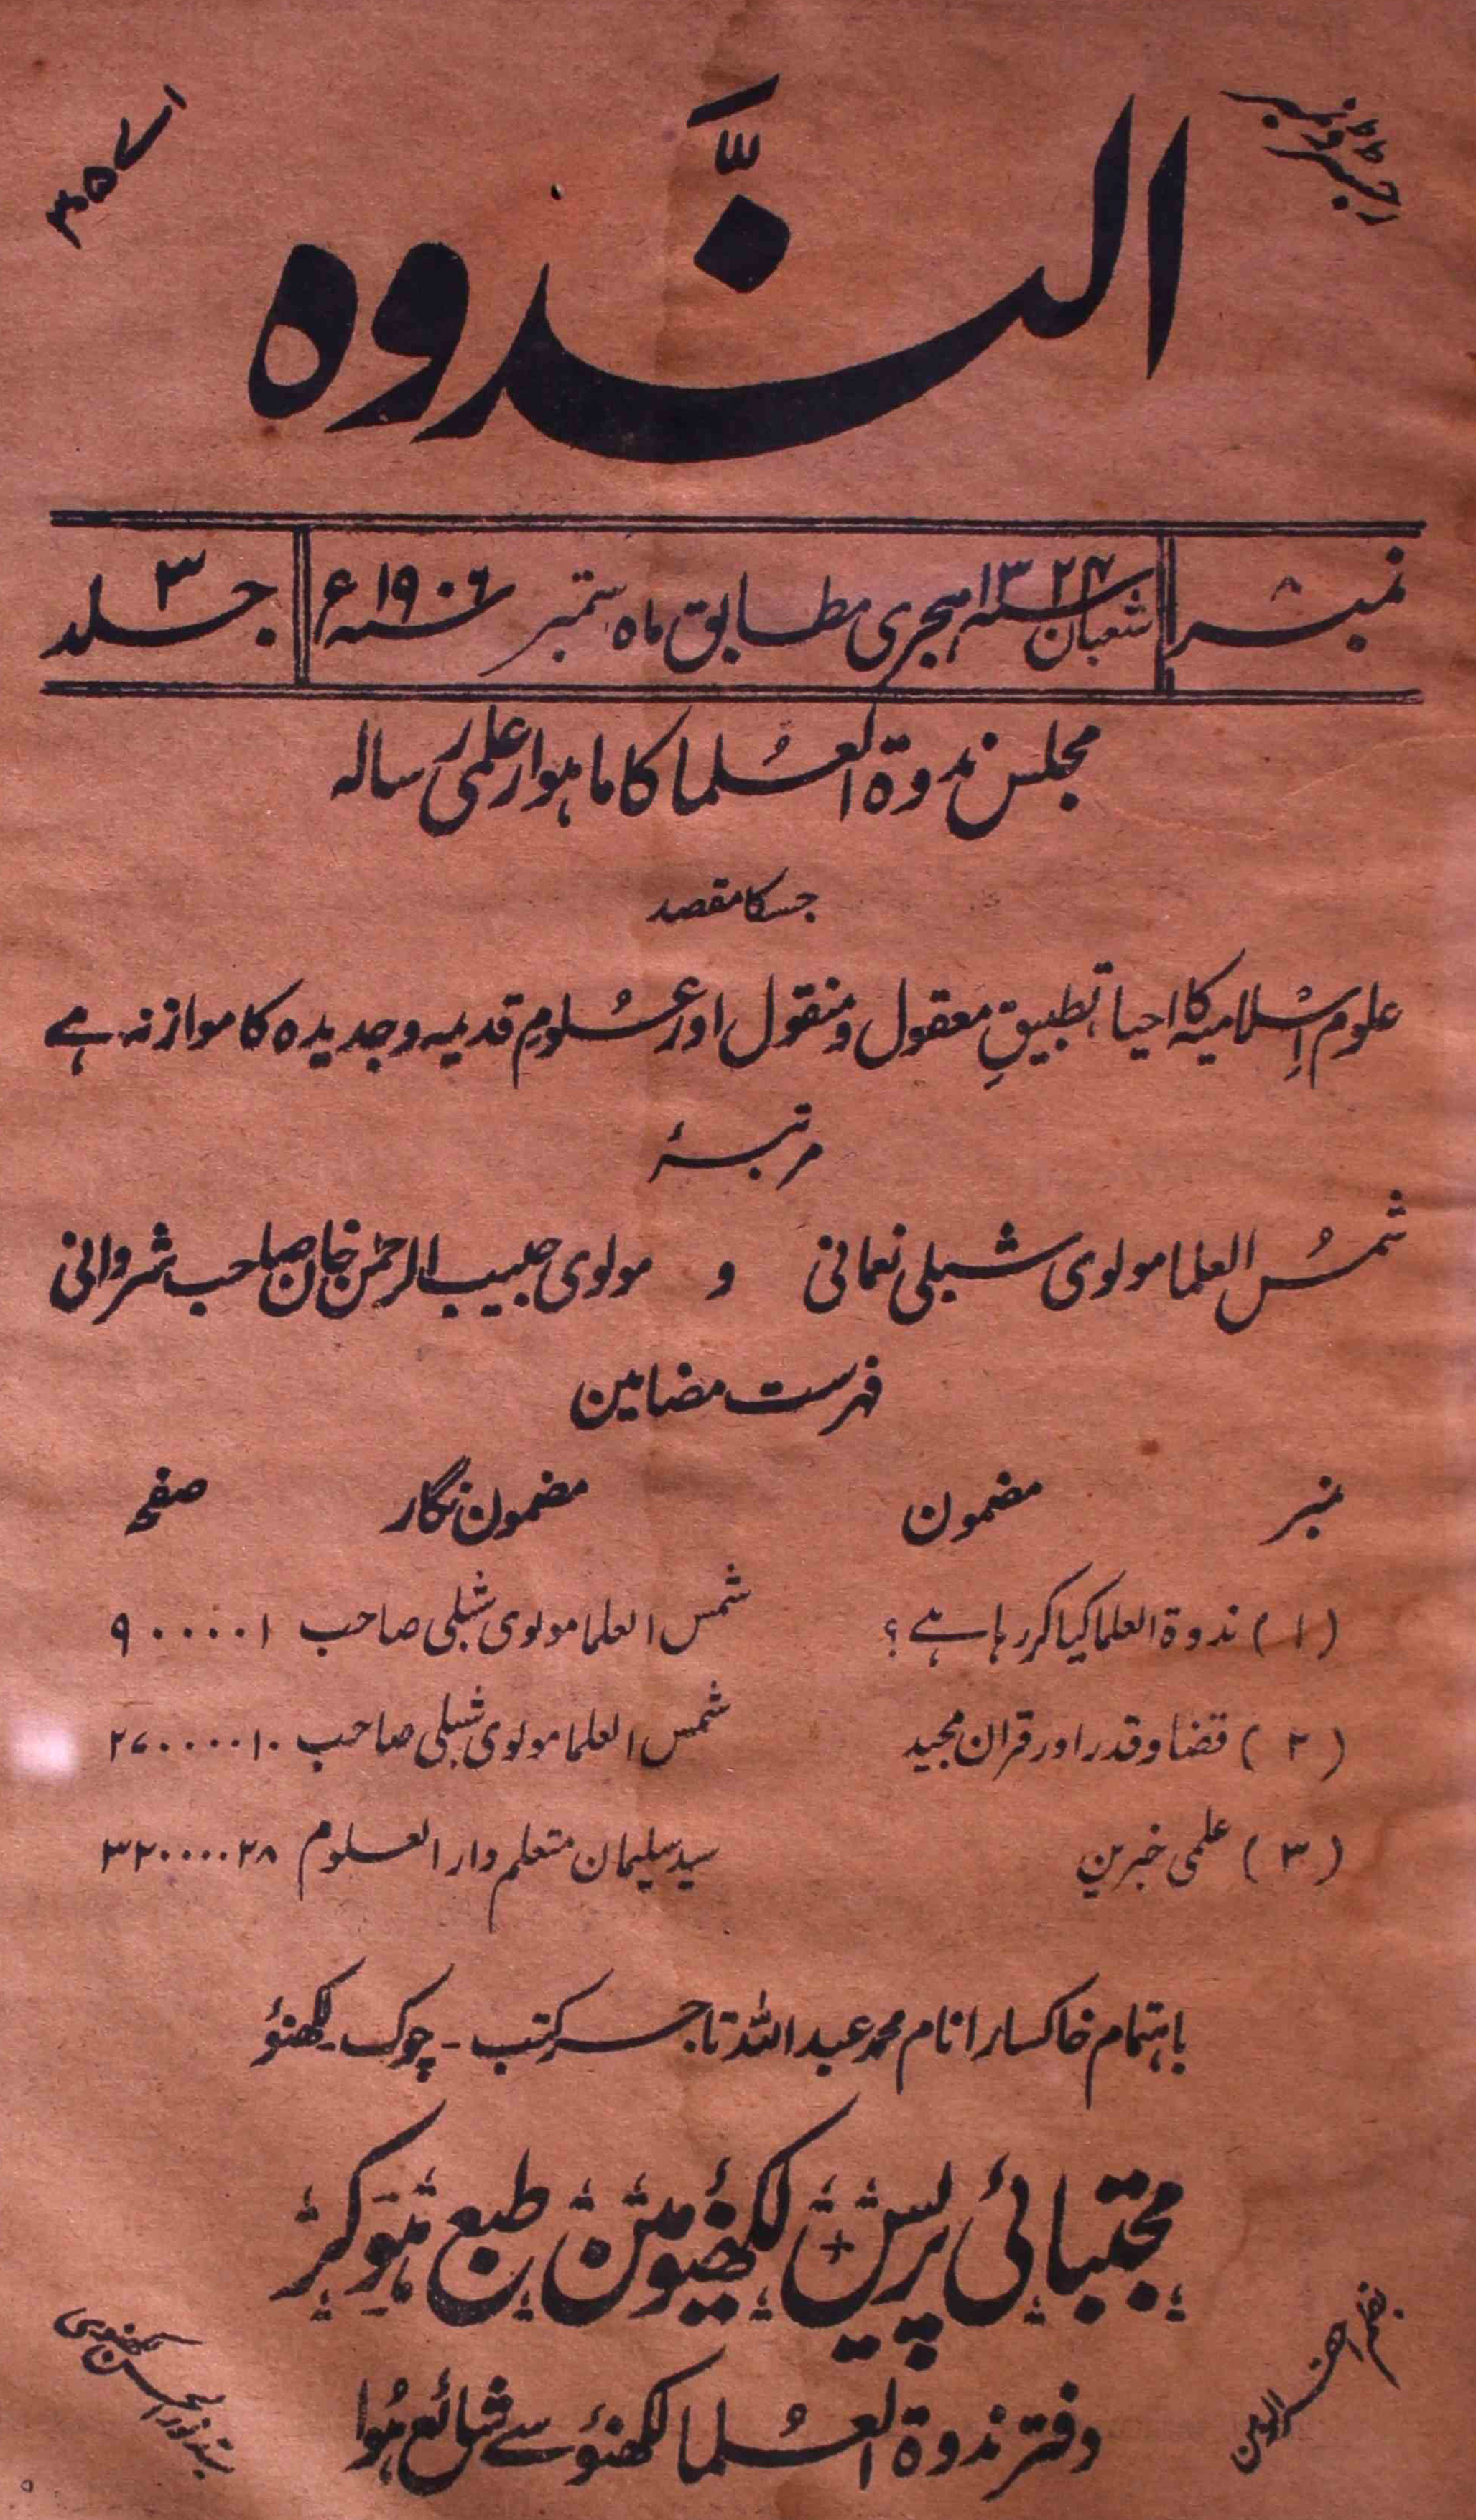 النَّدوہ
نمبر ۸ شعبان سنہ ۱۳۲۴ ہجری مطابق ماہ ستمبر سنہ ۱۹۰۶ء جلد ۳
مجلس ندوۃ العُلما کا ماہوار علمی رسالہ
جسکا مقصد
علوم اِسلامیہ کا احیا، تطبیقِ معقول و منقول اور عُلومِ قدیمہ و جدیدہ کا موازنہ ہے
مرتبۂ
شمسُ العلما مولوی شبلی نعمانی و مولوی حبیب الرحمٰن خان صاحب شروانی
فہرست مضامین
نمبر مضمون مضمون نگار صفحہ
(۱) ندوۃ العلما کیا کر رہا ہے؟ شمس العلما مولوی شبلی صاحب ۱.....۹
(۲) قضا و قدر اور قران مجید شمس العلما مولوی شبلی صاحب ۱۰.....۲۷
(۳) علمی خبرین سید سلیمان متعلم دار العلوم ۲۸....۳۲
باہتمام خاکسار انام محمد عبد اللہ تاجر کتب - چوک - لکھنؤ
مجتبائی پریس لکھنؤ مین طبع ہوکر
دفتر ندوۃ العُلما لکھنؤ سے شائع ہُوا
سید نور الحسن لکھنوی